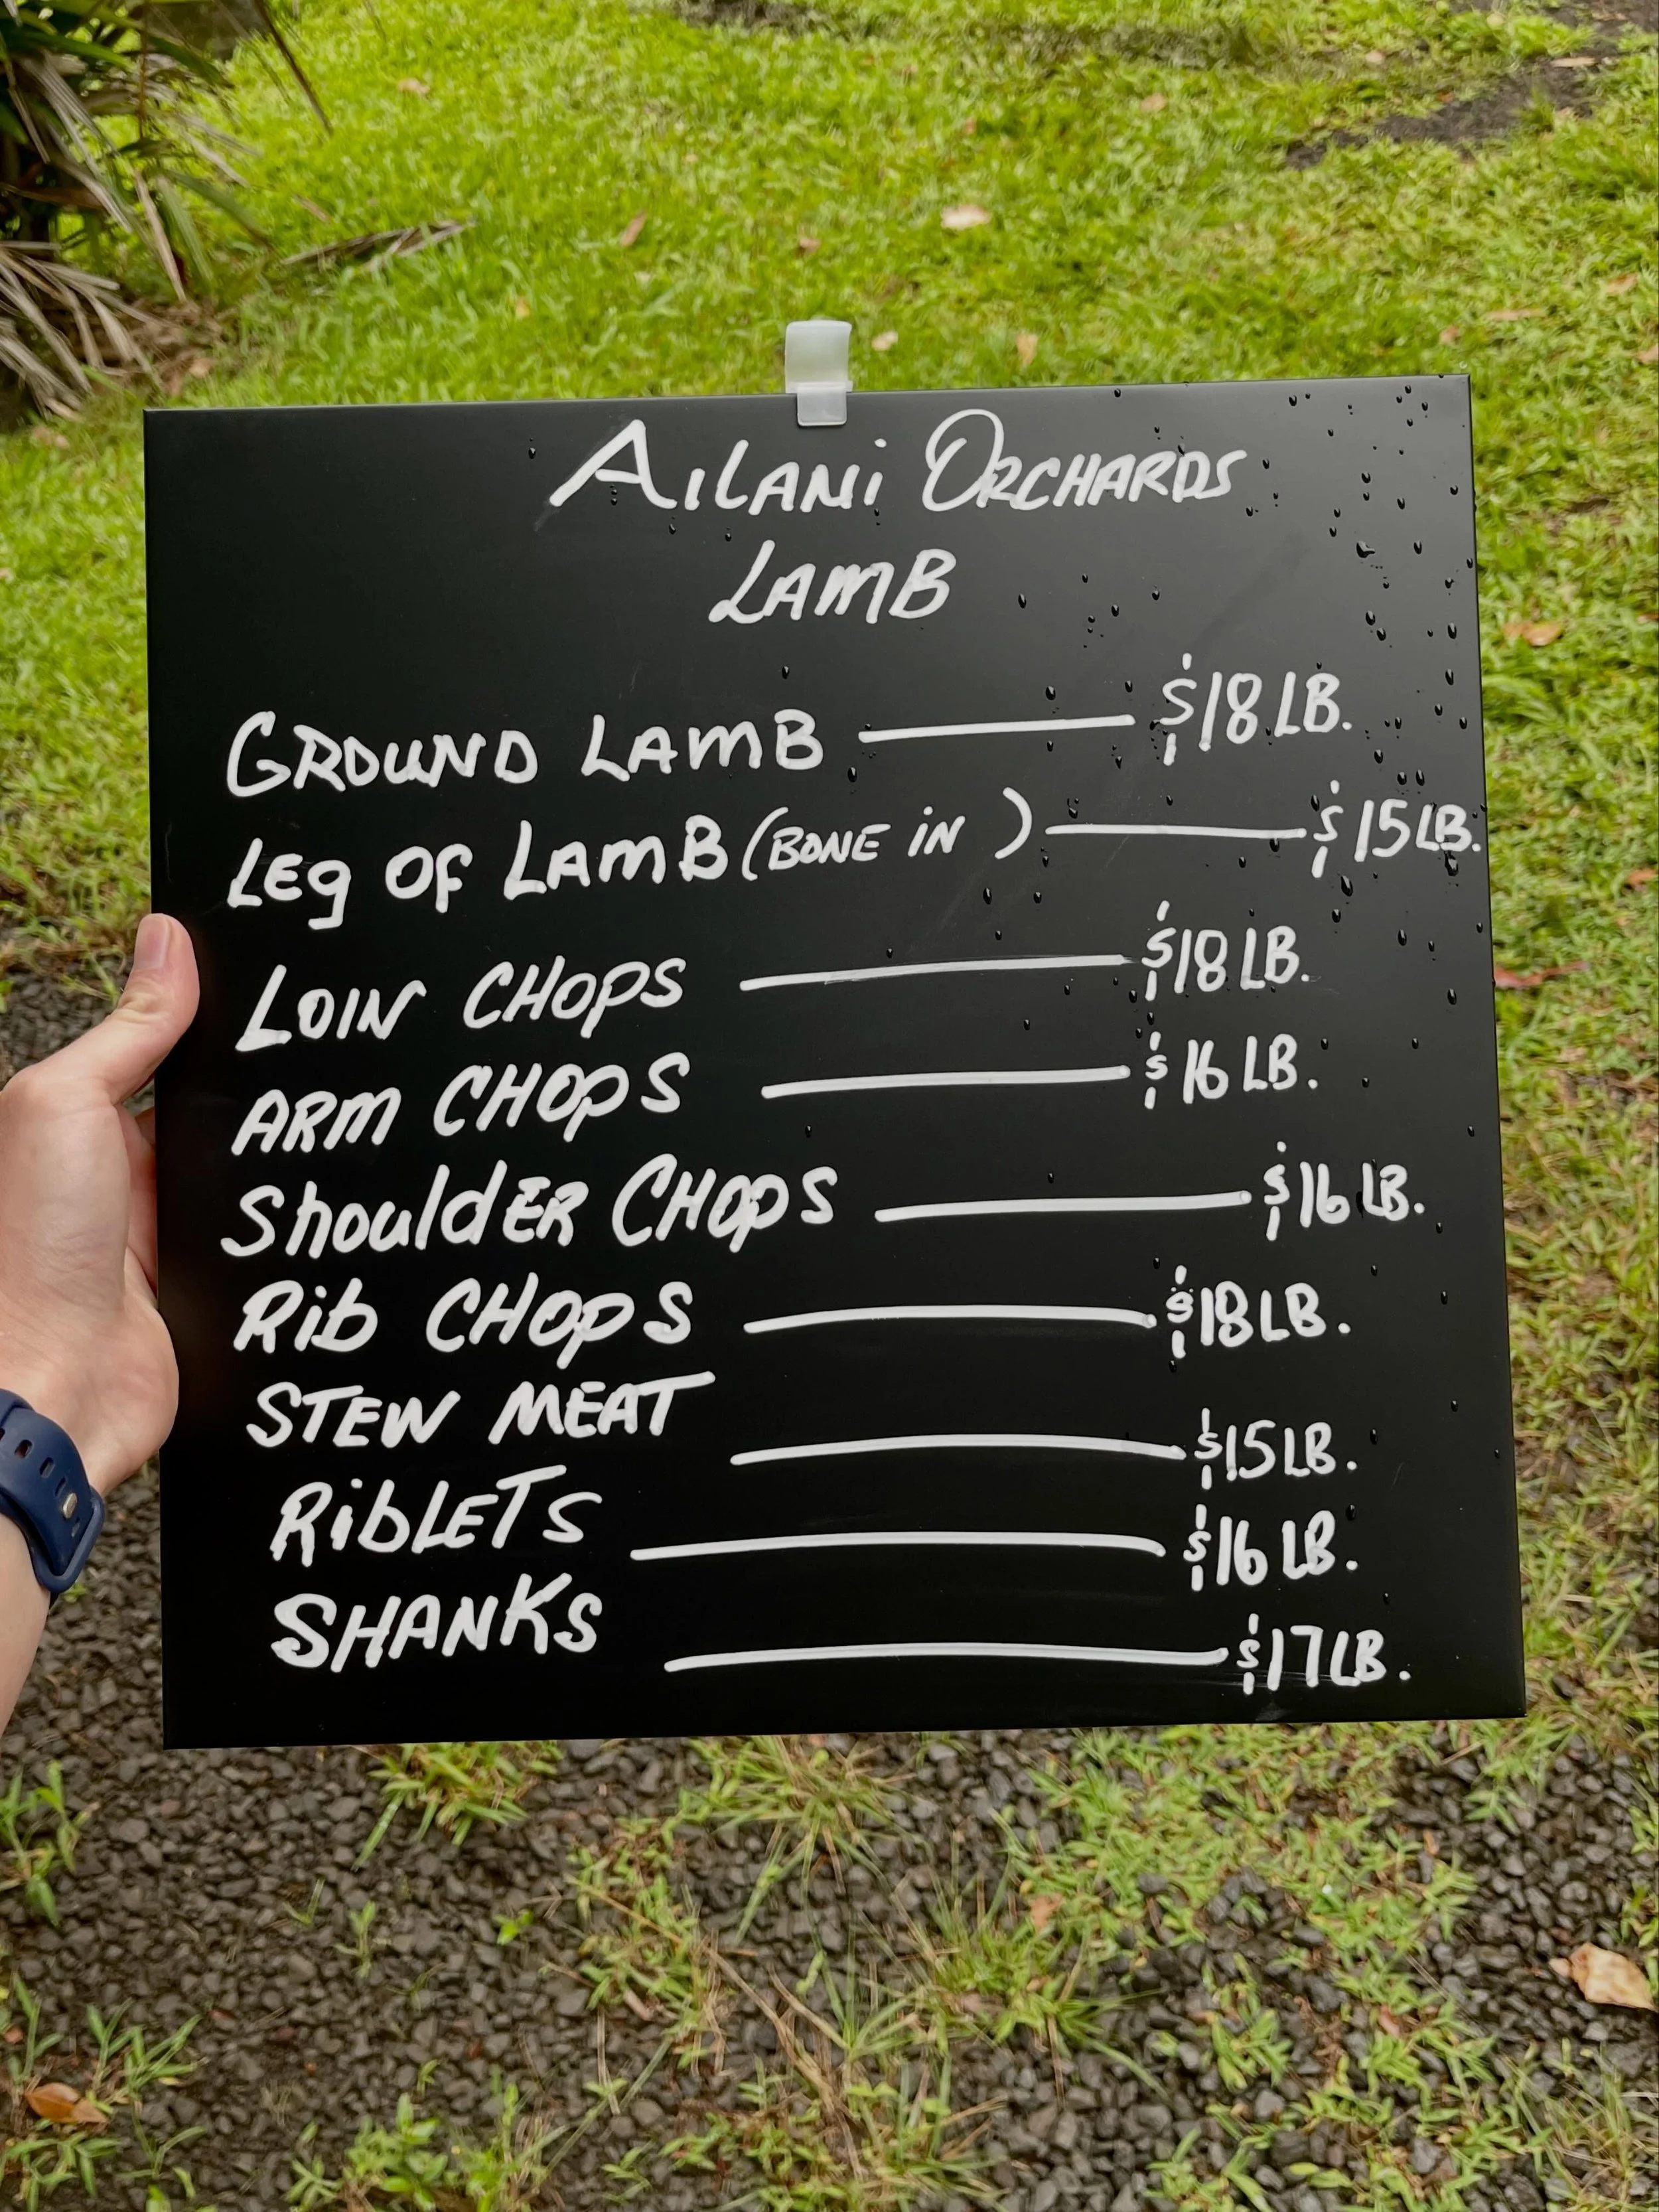 AILANI ORCHARDS
LAMB
GROUND LAMB — $18 LB.
Leg OF LAMB (BONE iN) — $15 LB.
LOIN CHOPS — $18 LB.
ARM CHOPS — $16 LB.
ShouldER CHOPS — $16 LB.
Rib CHOPS — $18 LB.
STEW MEAT — $15 LB.
RibLETS — $16 LB.
SHANKS — $17 LB.